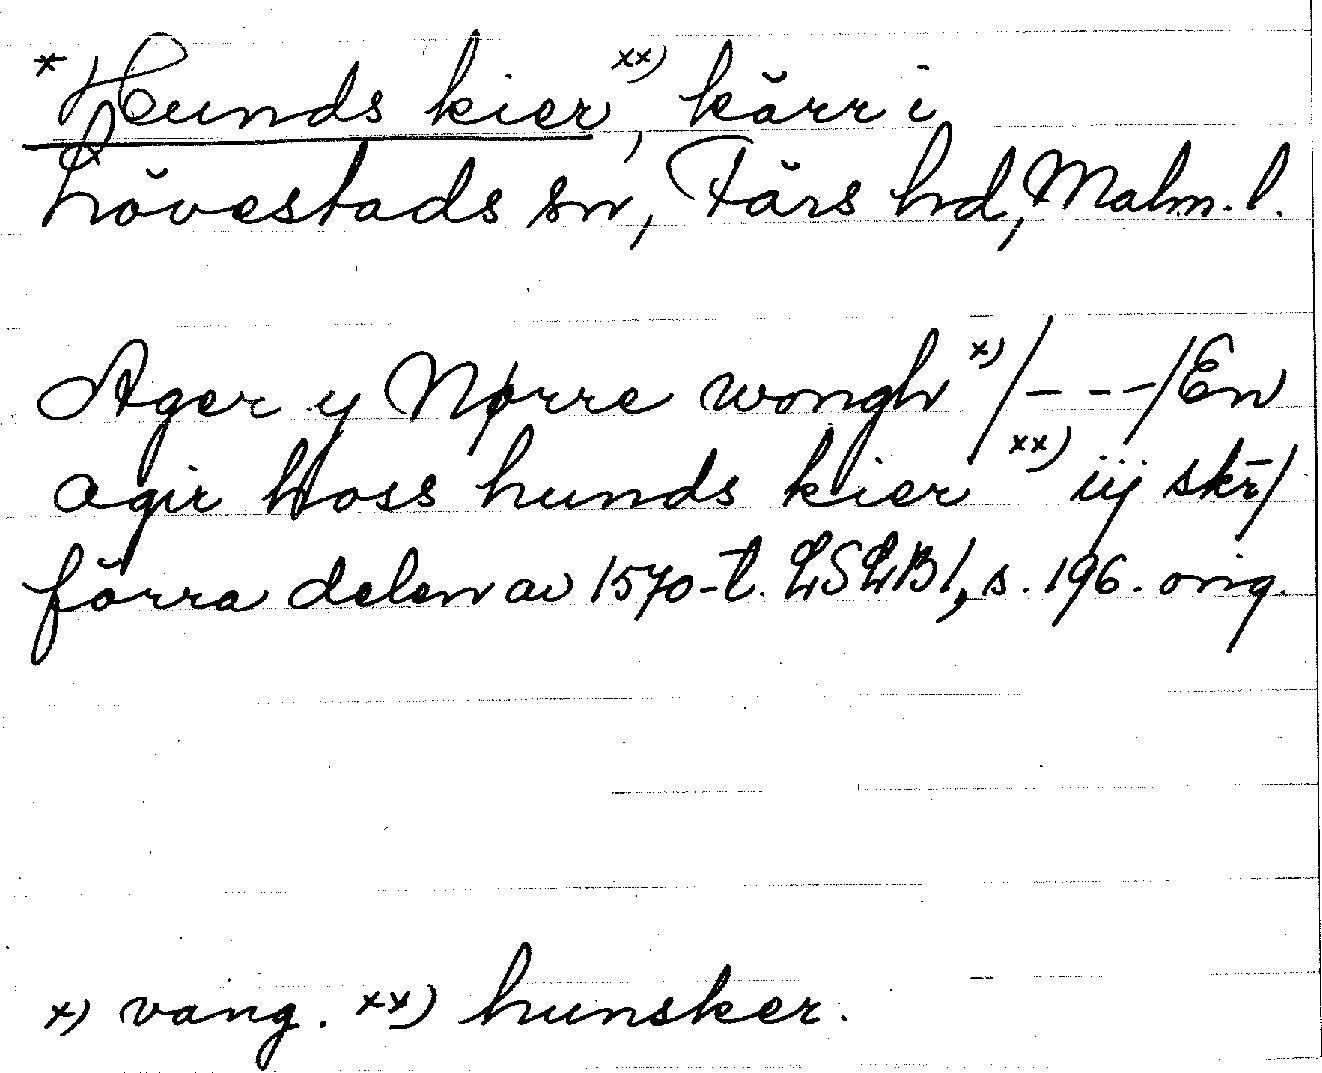 * Hunds kier xx), kärr i
Lövestads sn, Färs hd, Malm. l.
Ager y Nørre wongh x) /---/ En
agir hoss hunds kier xx) iij skr̄/
förra delen av 1570-t. LSLB1, s. 196. orig.
x) vang. xx) hunsker.